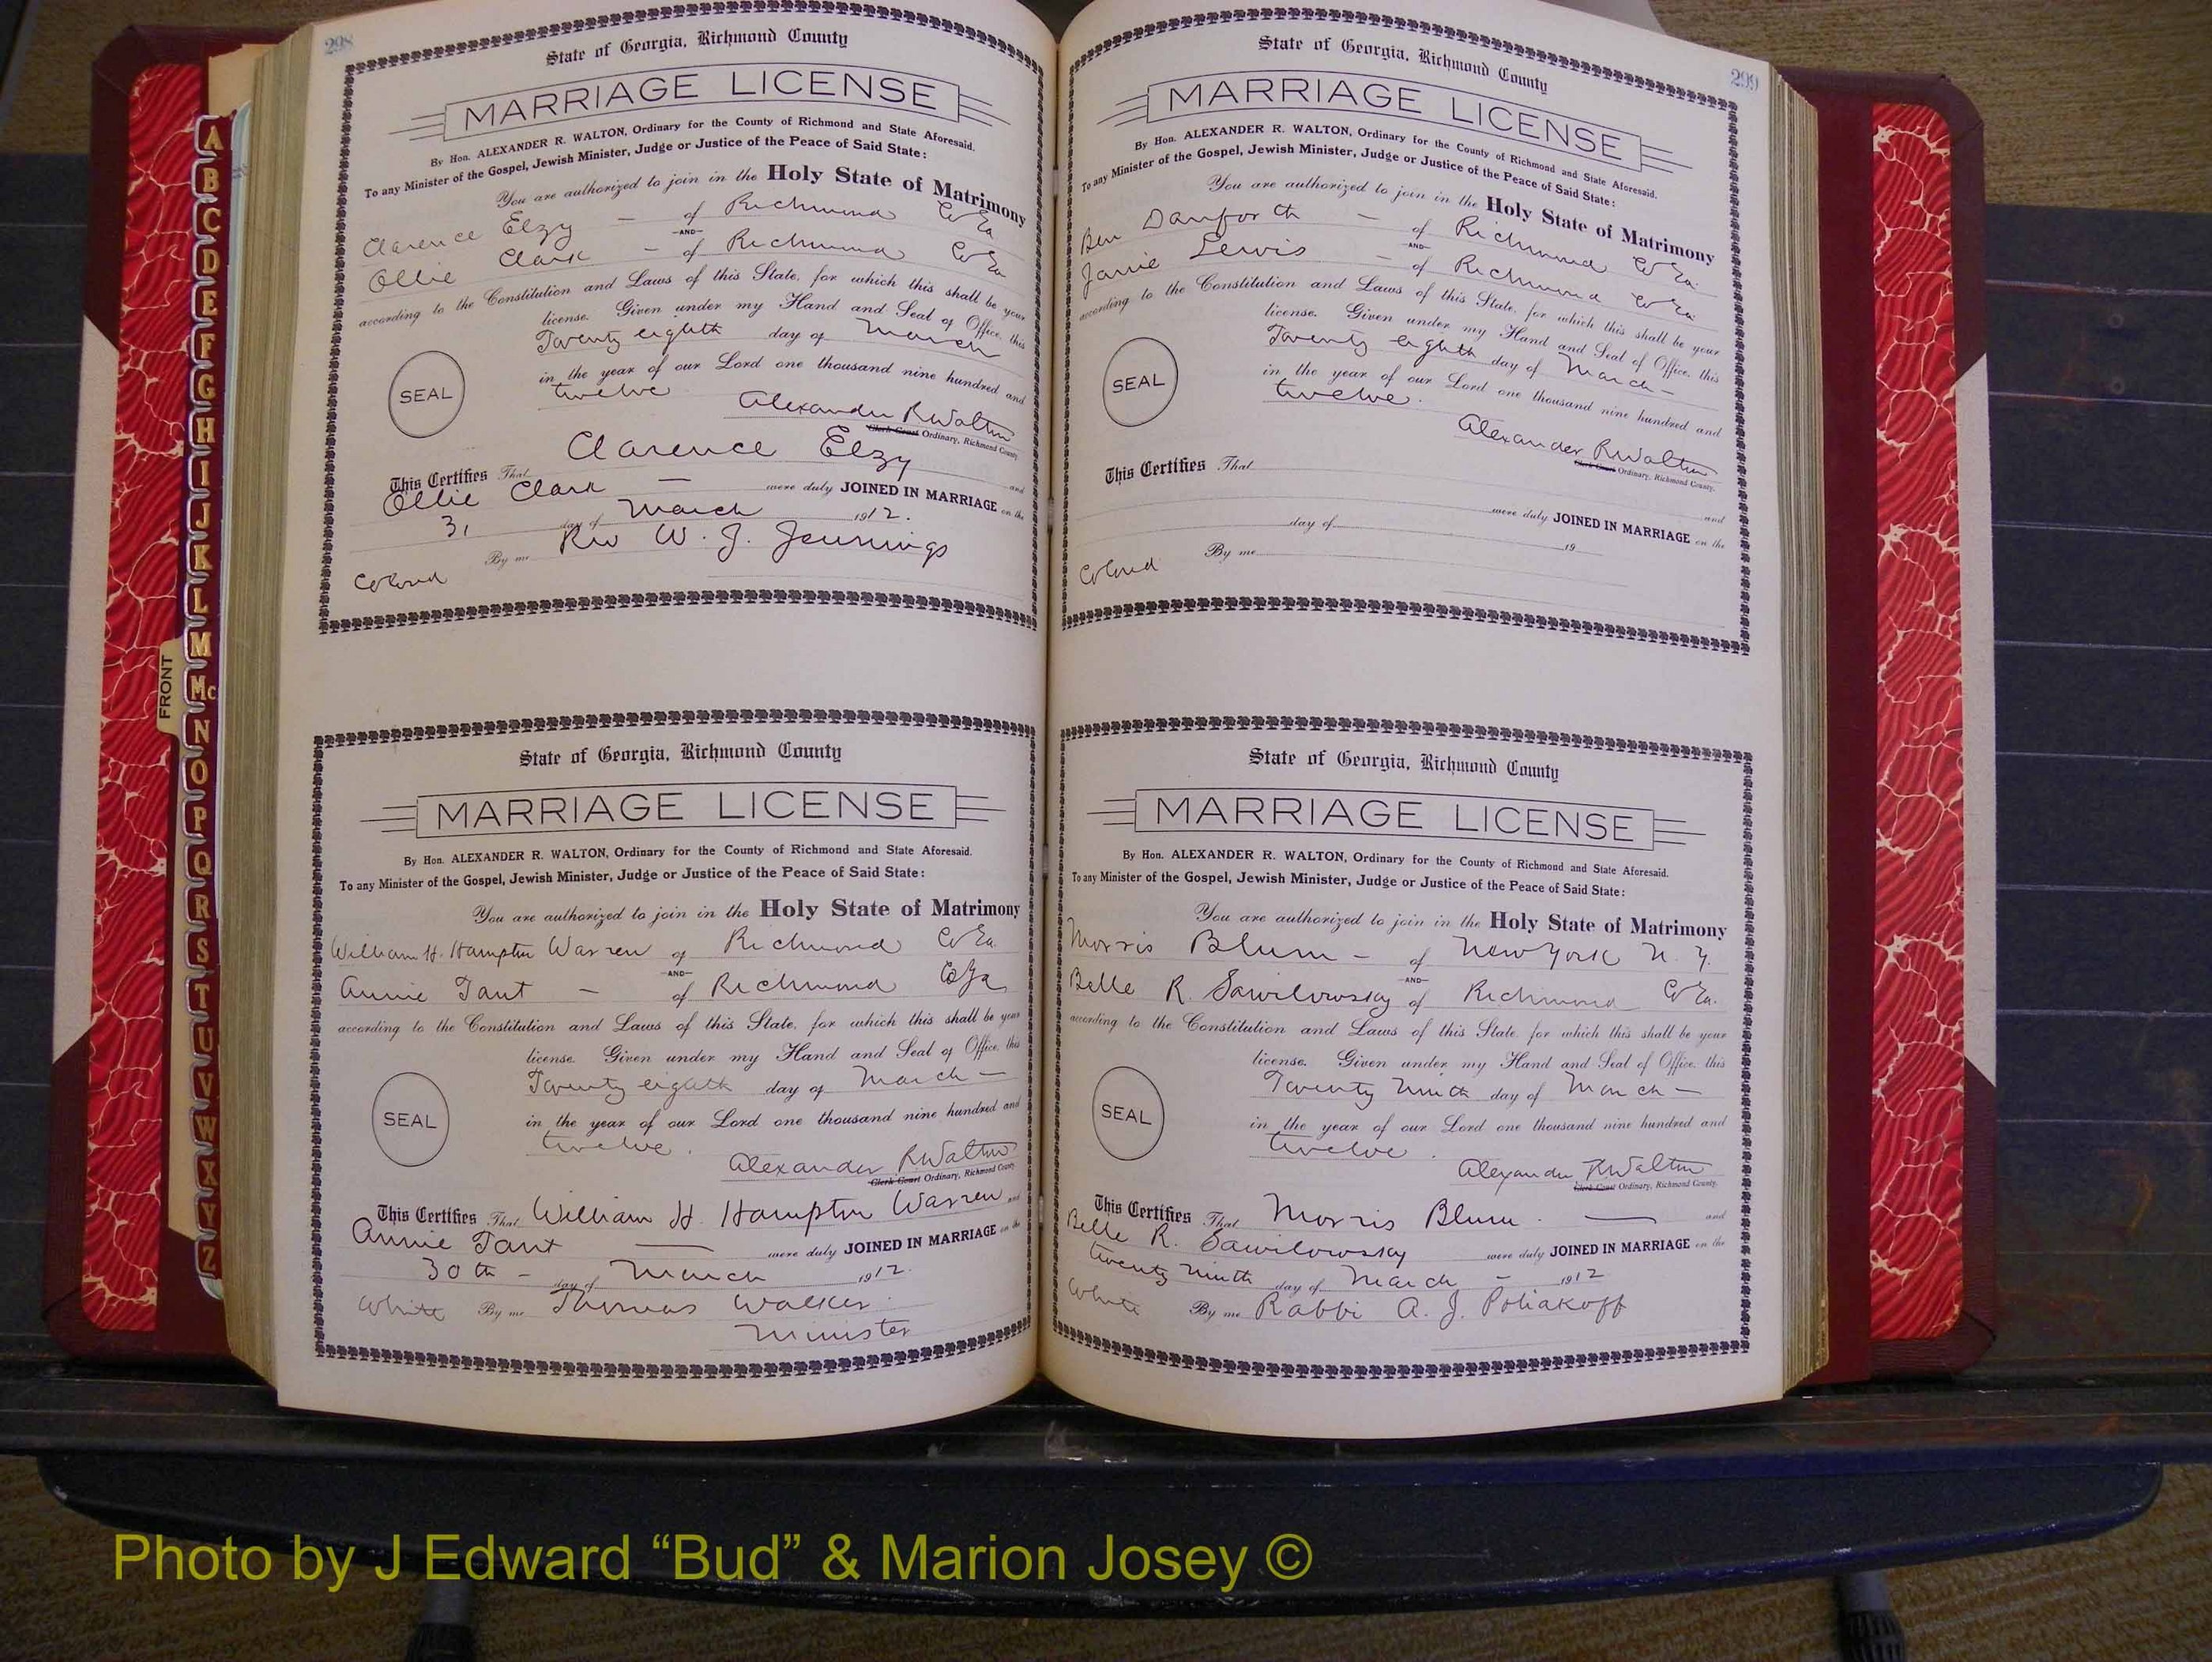 298
State of Georgia, Richmond County
MARRIAGE LICENSE
By Hon. ALEXANDER R. WALTON, Ordinary for the County of Richmond and State Aforesaid.
To any Minister of the Gospel, Jewish Minister, Judge or Justice of the Peace of Said State:
You are authorized to join in the Holy State of Matrimony
Clarence Elzy — of Richmond Co Ga
-AND-
Ollie Clark — of Richmond Co Ga
according to the Constitution and Laws of this State, for which this shall be your
license. Given under my Hand and Seal of Office, this
Twenty eighth day of March
in the year of our Lord one thousand nine hundred and
twelve
SEAL
Alexander R Walton
Clerk Court Ordinary, Richmond County
This Certifies That Clarence Elzy and
Ollie Clark — were duly JOINED IN MARRIAGE on the
31 day of March 1912.
By me Rev W. J. Jennings
Colored
State of Georgia, Richmond County
MARRIAGE LICENSE
By Hon. ALEXANDER R. WALTON, Ordinary for the County of Richmond and State Aforesaid.
To any Minister of the Gospel, Jewish Minister, Judge or Justice of the Peace of Said State:
You are authorized to join in the Holy State of Matrimony
William H. Hampton Warren of Richmond Co Ga
-AND-
Annie Tant — of Richmond Co Ga
according to the Constitution and Laws of this State, for which this shall be your
license. Given under my Hand and Seal of Office, this
Twenty eighth day of March —
in the year of our Lord one thousand nine hundred and
twelve.
SEAL
Alexander R Walton
Clerk Court Ordinary, Richmond County
This Certifies That William H. Hampton Warren and
Annie Tant — were duly JOINED IN MARRIAGE on the
30th — day of March 1912.
White By me Thomas Walker
Minister
299
State of Georgia, Richmond County
MARRIAGE LICENSE
By Hon. ALEXANDER R. WALTON, Ordinary for the County of Richmond and State Aforesaid.
To any Minister of the Gospel, Jewish Minister, Judge or Justice of the Peace of Said State:
You are authorized to join in the Holy State of Matrimony
Ben Danforth — of Richmond Co Ga.
-AND-
Janie Lewis — of Richmond Co Ga.
according to the Constitution and Laws of this State, for which this shall be your
license. Given under my Hand and Seal of Office, this
Twenty eighth day of March —
in the year of our Lord one thousand nine hundred and
twelve.
SEAL
Alexander R Walton
Clerk Court Ordinary, Richmond County.
This Certifies That and
were duly JOINED IN MARRIAGE on the
day of 19
By me
Colored
State of Georgia, Richmond County
MARRIAGE LICENSE
By Hon. ALEXANDER R. WALTON, Ordinary for the County of Richmond and State Aforesaid.
To any Minister of the Gospel, Jewish Minister, Judge or Justice of the Peace of Said State:
You are authorized to join in the Holy State of Matrimony
Morris Blum — of New York N. Y.
-AND-
Belle R. Sawilowsky of Richmond Co Ga.
according to the Constitution and Laws of this State, for which this shall be your
license. Given under my Hand and Seal of Office, this
Twenty Ninth day of March —
in the year of our Lord one thousand nine hundred and
twelve.
SEAL
Alexander R Walton
Clerk Court Ordinary, Richmond County.
This Certifies That Morris Blum. — and
Belle R. Sawilowsky were duly JOINED IN MARRIAGE on the
twenty ninth day of March — 1912
White By me Rabbi A. J. Poliakoff
A
B
C
D
E
F
G
H
I
J
K
L
M
Mc
N
O
P
Q
R
S
T
U
V
W
X
Y
Z
FRONT
Photo by J Edward “Bud” & Marion Josey ©